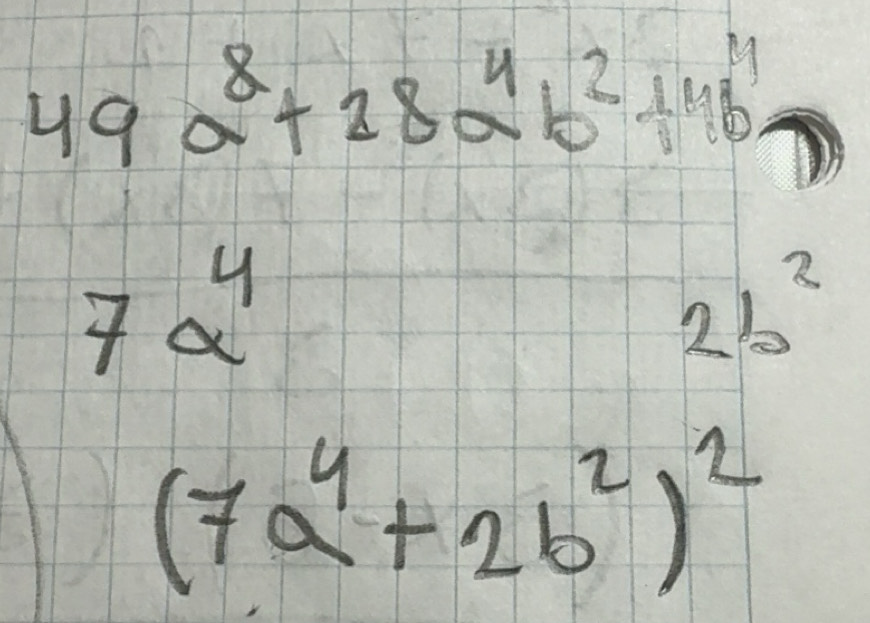 49a⁸+28a⁴b²+4b⁴
7a⁴ 2b²
(7a⁴+2b²)²